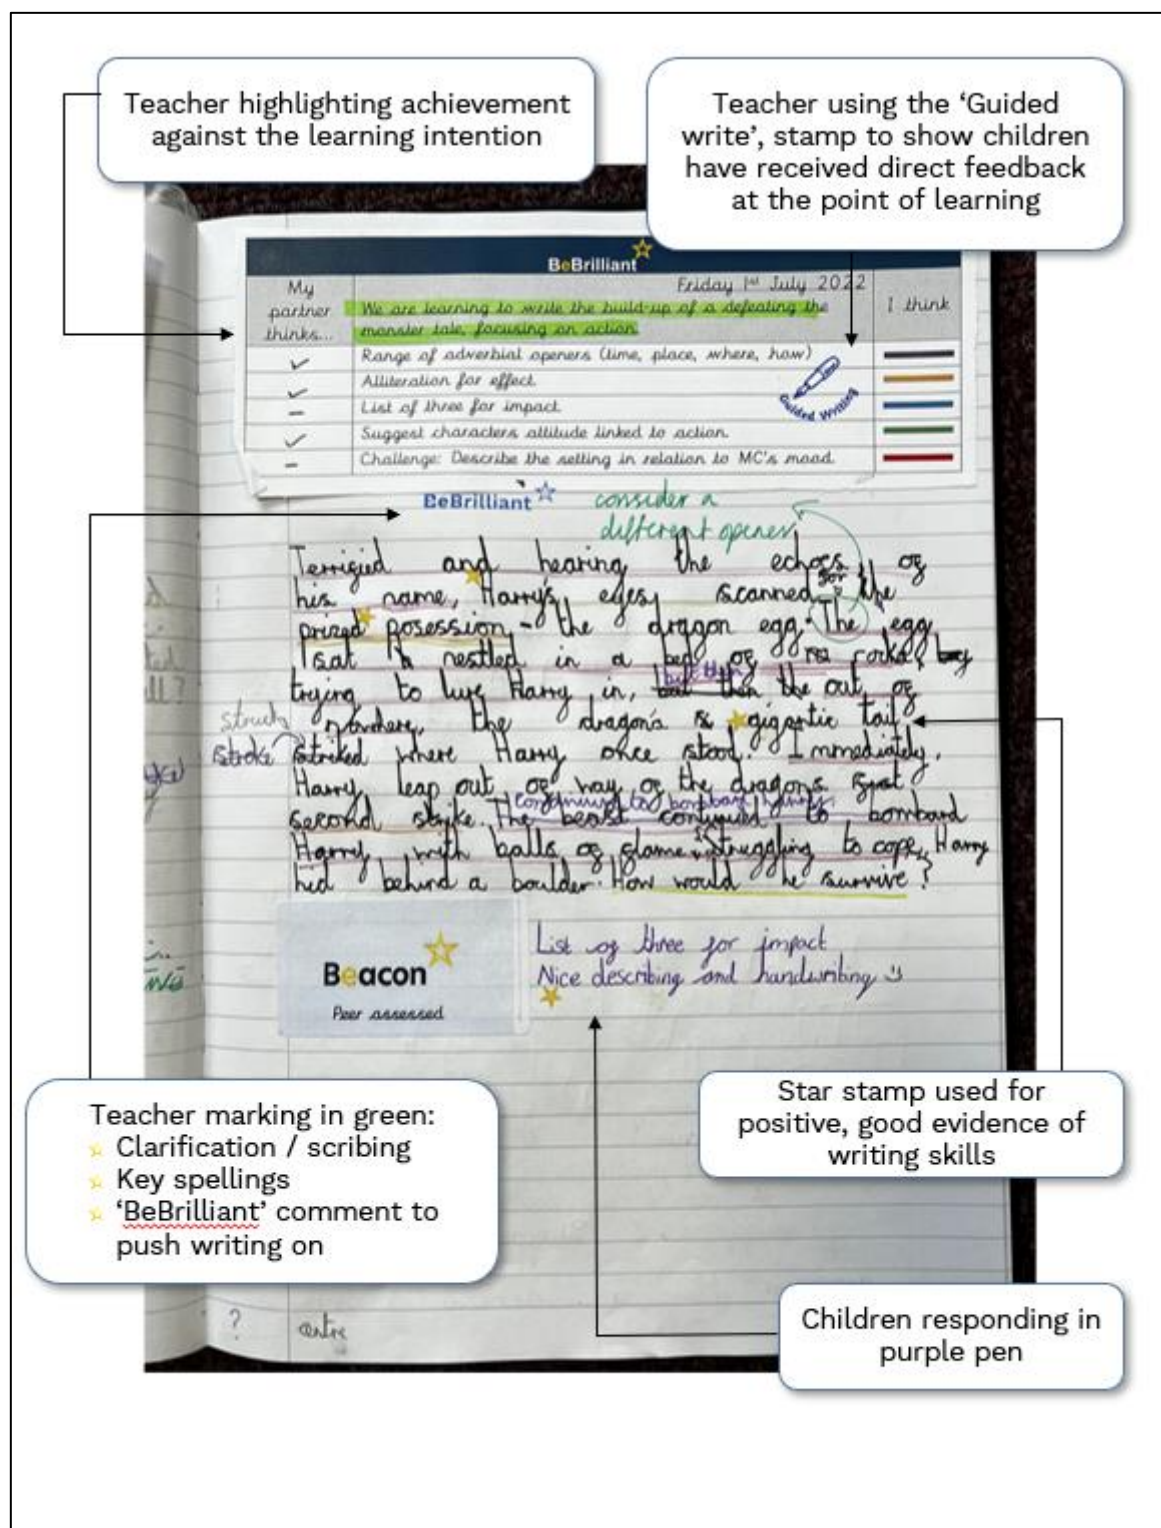 Teacher highlighting achievement
against the learning intention
Teacher using the ‘Guided
write’, stamp to show children
have received direct feedback
at the point of learning
BeBrilliant
My
partner
thinks...
Friday 1st July 2022
We are learning to write the build-up of a defeating the
monster tale, focusing on action.
I think
Range of adverbial openers (time, place, where, how)
Alliteration for effect
List of three for impact
Suggest characters attitude linked to action.
Challenge: Describe the setting in relation to MC's mood.
Guided Writing
BeBrilliant
consider a
different opener
Terrified and hearing the echoes of
for
his name, Harry's eyes, scanned the
prized posession - the dragon egg. The egg
sat nestled in a bed of rocks, by
but then
trying to lure Harry in, but then the out of
nowhere, the dragon's gigantic tail
struck
stroke striked where Harry once stood. Immediately,
Harry leap out of way of the dragons
second strike. The beast continued to bombard
continued to bombard
Harry with balls of flame. Struggling to cope, Harry
hid behind a boulder. How would he survive?
Beacon
Peer assessed
List of three for impact
Nice describing and handwriting
Teacher marking in green:
Clarification / scribing
Key spellings
‘BeBrilliant’ comment to
push writing on
Star stamp used for
positive, good evidence of
writing skills
Children responding in
purple pen
?